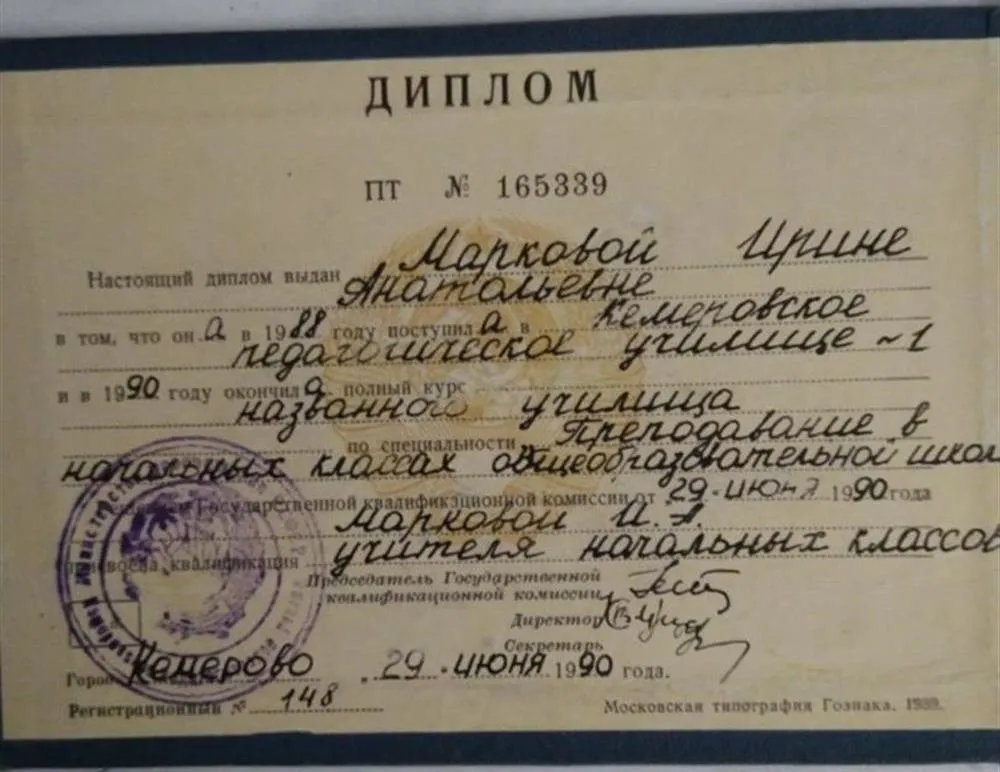 ДИПЛОМ
ПТ № 165339
Настоящий диплом выдан Марковой Ирине
Анатольевне
в том, что он а в 1988 году поступил а в Кемеровское
педагогическое училище ~1
и в 1990 году окончил а полный курс
названного училища
по специальности Преподавание в
начальных классах общеобразовательной школ
Государственной квалификационной комиссии от 29 июня 1990 года
Марковой И.А.
присвоена квалификация учителя начальных классов
Председатель Государственной
квалификационной комиссии
Директор
Секретарь
Город Кемерово 29 июня 1990 года.
Регистрационный № 148
Московская типография Гознака.